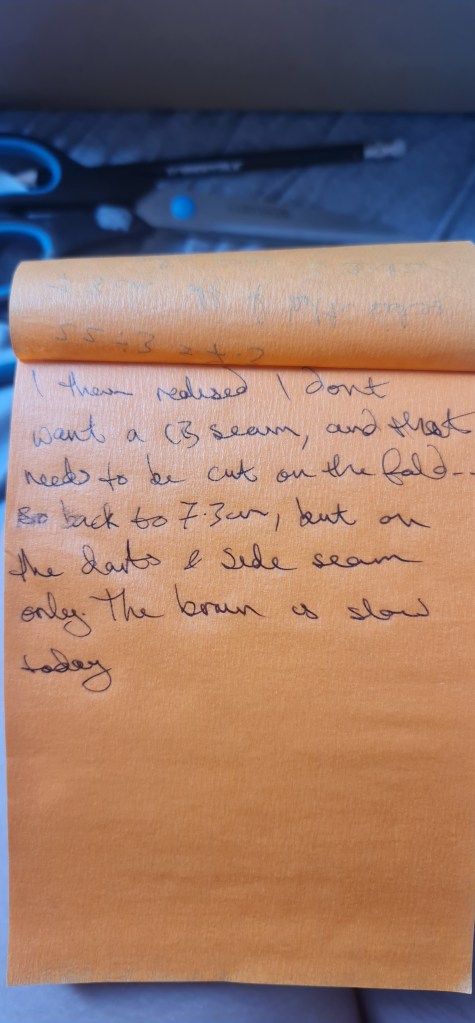 I then realised I dont
want a CB seam, and that
needs to be cut on the fold...
so back to 7.3cm, but on
the darts & side seam
only. The brain is slow
today